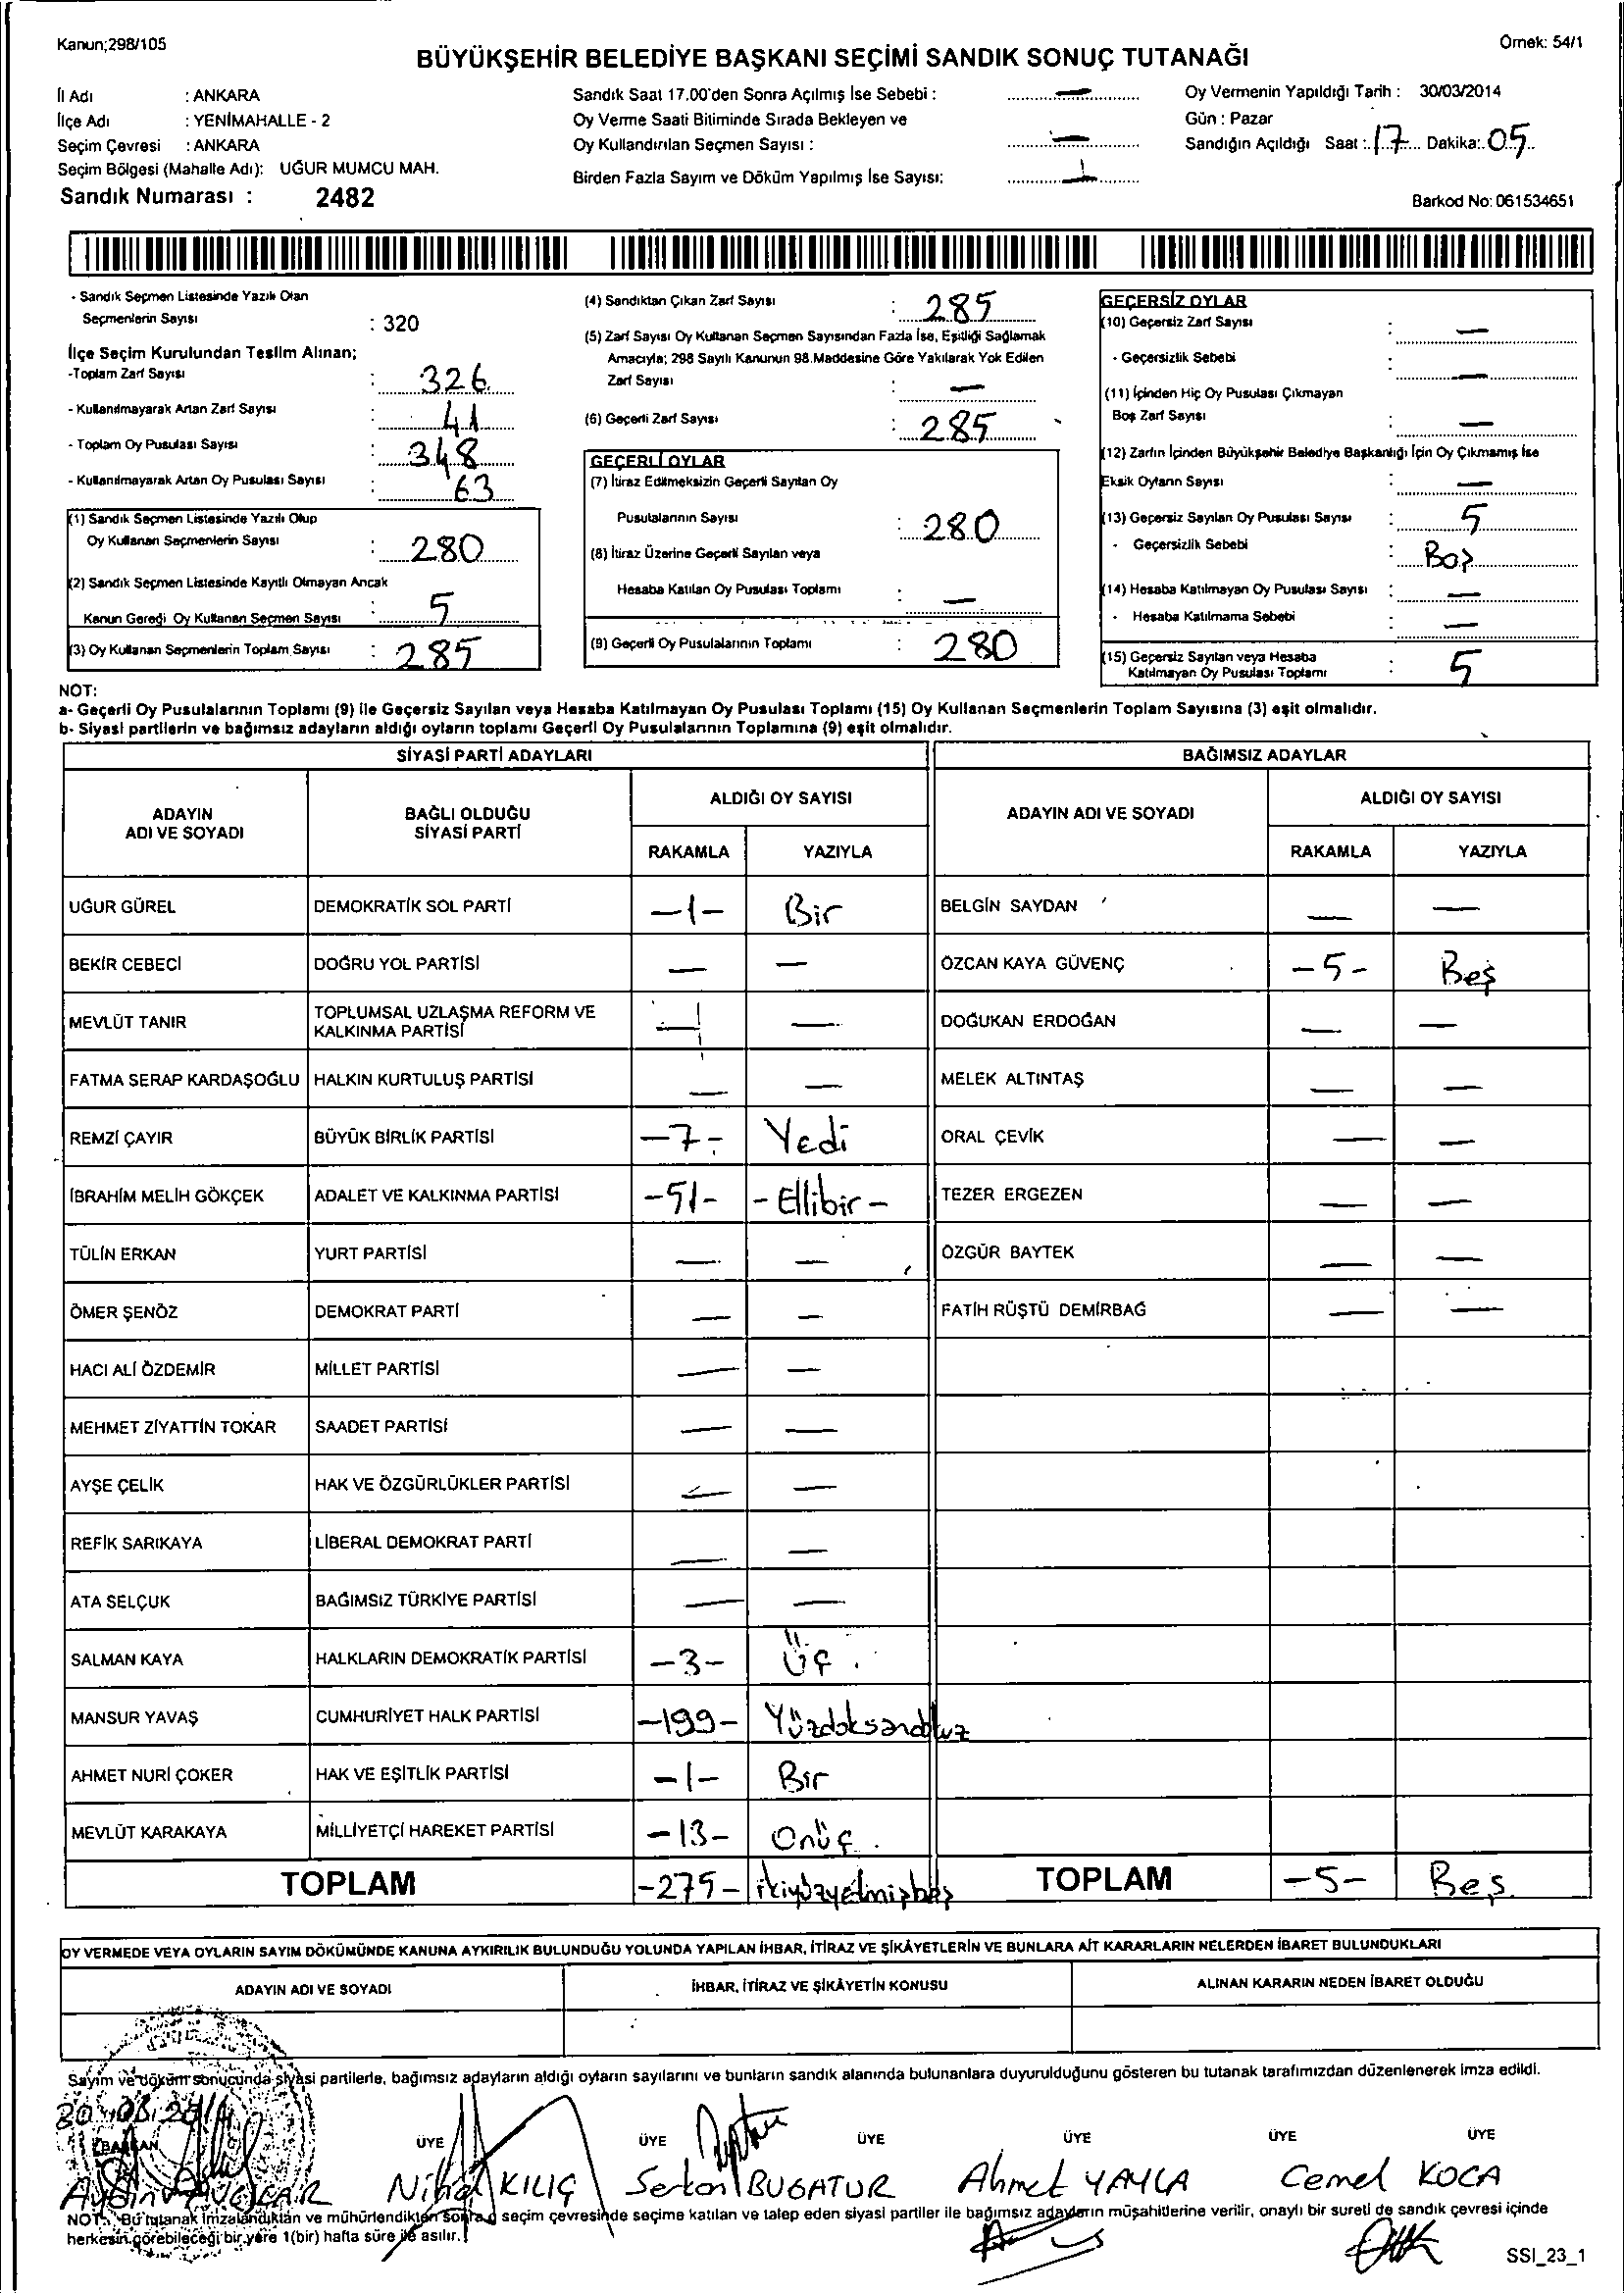 Kanun;298/105
Örnek: 54/1
BÜYÜKŞEHİR BELEDİYE BAŞKANI SEÇİMİ SANDIK SONUÇ TUTANAĞI
İl Adı : ANKARA
İlçe Adı : YENİMAHALLE - 2
Seçim Çevresi : ANKARA
Seçim Bölgesi (Mahalle Adı): UĞUR MUMCU MAH.
Sandık Numarası : 2482
Sandık Saat 17.00'den Sonra Açılmış İse Sebebi : —
Oy Verme Saati Bitiminde Sırada Bekleyen ve
Oy Kullandırılan Seçmen Sayısı : —
Birden Fazla Sayım ve Döküm Yapılmış İse Sayısı:
Oy Vermenin Yapıldığı Tarih : 30/03/2014
Gün : Pazar
Sandığın Açıldığı Saat : 17 Dakika: 05
Barkod No: 061534651
- Sandık Seçmen Listesinde Yazılı Olan
Seçmenlerin Sayısı : 320
İlçe Seçim Kurulundan Teslim Alınan;
-Toplam Zarf Sayısı : 326
- Kullanılmayarak Artan Zarf Sayısı : 41
- Toplam Oy Pusulası Sayısı : 348
- Kullanılmayarak Artan Oy Pusulası Sayısı : 63
(1) Sandık Seçmen Listesinde Yazılı Olup
Oy Kullanan Seçmenlerin Sayısı : 280
(2) Sandık Seçmen Listesinde Kayıtlı Olmayan Ancak
Kanun Gereği Oy Kullanan Seçmen Sayısı : 5
(3) Oy Kullanan Seçmenlerin Toplam Sayısı : 285
(4) Sandıktan Çıkan Zarf Sayısı : 285
(5) Zarf Sayısı Oy Kullanan Seçmen Sayısından Fazla İse, Eşitliği Sağlamak
Amacıyla; 298 Sayılı Kanunun 98.Maddesine Göre Yakılarak Yok Edilen
Zarf Sayısı : —
(6) Geçerli Zarf Sayısı : 285
GEÇERLİ OYLAR
(7) İtiraz Edilmeksizin Geçerli Sayılan Oy
Pusulalarının Sayısı : 280
(8) İtiraz Üzerine Geçerli Sayılan veya
Hesaba Katılan Oy Pusulası Toplamı : —
(9) Geçerli Oy Pusulalarının Toplamı : 280
GEÇERSİZ OYLAR
(10) Geçersiz Zarf Sayısı : —
- Geçersizlik Sebebi : —
(11) İçinden Hiç Oy Pusulası Çıkmayan
Boş Zarf Sayısı : —
(12) Zarfın İçinden Büyükşehir Belediye Başkanlığı İçin Oy Çıkmamış İse
Eksik Oyların Sayısı : —
(13) Geçersiz Sayılan Oy Pusulası Sayısı : 5
- Geçersizlik Sebebi : Boş
(14) Hesaba Katılmayan Oy Pusulası Sayısı : —
- Hesaba Katılmama Sebebi : —
(15) Geçersiz Sayılan veya Hesaba
Katılmayan Oy Pusulası Toplamı : 5
NOT:
a- Geçerli Oy Pusulalarının Toplamı (9) ile Geçersiz Sayılan veya Hesaba Katılmayan Oy Pusulası Toplamı (15) Oy Kullanan Seçmenlerin Toplam Sayısına (3) eşit olmalıdır.
b- Siyasi partilerin ve bağımsız adayların aldığı oyların toplamı Geçerli Oy Pusulalarının Toplamına (9) eşit olmalıdır.
SİYASİ PARTİ ADAYLARI
BAĞIMSIZ ADAYLAR
ADAYIN ADI VE SOYADI
BAĞLI OLDUĞU SİYASİ PARTİ
ALDIĞI OY SAYISI
RAKAMLA YAZIYLA
ADAYIN ADI VE SOYADI
ALDIĞI OY SAYISI
RAKAMLA YAZIYLA
UĞUR GÜREL DEMOKRATİK SOL PARTİ -1- Bir BELGİN SAYDAN — —
BEKİR CEBECİ DOĞRU YOL PARTİSİ — — ÖZCAN KAYA GÜVENÇ -5- Beş
MEVLÜT TANIR TOPLUMSAL UZLAŞMA REFORM VE KALKINMA PARTİSİ — — DOĞUKAN ERDOĞAN — —
FATMA SERAP KARDAŞOĞLU HALKIN KURTULUŞ PARTİSİ — — MELEK ALTINTAŞ — —
REMZİ ÇAYIR BÜYÜK BİRLİK PARTİSİ -7- Yedi ORAL ÇEVİK — —
İBRAHİM MELİH GÖKÇEK ADALET VE KALKINMA PARTİSİ -51- -Ellibir- TEZER ERGEZEN — —
TÜLİN ERKAN YURT PARTİSİ — — ÖZGÜR BAYTEK — —
ÖMER ŞENÖZ DEMOKRAT PARTİ — — FATİH RÜŞTÜ DEMİRBAĞ — —
HACI ALİ ÖZDEMİR MİLLET PARTİSİ — —
MEHMET ZİYATTİN TOKAR SAADET PARTİSİ — —
AYŞE ÇELİK HAK VE ÖZGÜRLÜKLER PARTİSİ — —
REFİK SARIKAYA LİBERAL DEMOKRAT PARTİ — —
ATA SELÇUK BAĞIMSIZ TÜRKİYE PARTİSİ — —
SALMAN KAYA HALKLARIN DEMOKRATİK PARTİSİ -3- Üç
MANSUR YAVAŞ CUMHURİYET HALK PARTİSİ -199- Yüzdoksandokuz
AHMET NURİ ÇOKER HAK VE EŞİTLİK PARTİSİ -1- Bir
MEVLÜT KARAKAYA MİLLİYETÇİ HAREKET PARTİSİ -13- Onüç
TOPLAM -275- ikiyüzyetmişbeş TOPLAM -5- Beş
OY VERMEDE VEYA OYLARIN SAYIM DÖKÜMÜNDE KANUNA AYKIRILIK BULUNDUĞU YOLUNDA YAPILAN İHBAR, İTİRAZ VE ŞİKÂYETLERİN VE BUNLARA AİT KARARLARIN NELERDEN İBARET BULUNDUKLARI
ADAYIN ADI VE SOYADI İHBAR, İTİRAZ VE ŞİKÂYETİN KONUSU ALINAN KARARIN NEDEN İBARET OLDUĞU
Sayım ve döküm sonucunda siyasi partilerle, bağımsız adayların aldığı oyların sayılarını ve bunların sandık alanında bulunanlara duyurulduğunu gösteren bu tutanak tarafımızdan düzenlenerek imza edildi.
30.03.2014
BAŞKAN ÜYE ÜYE ÜYE ÜYE ÜYE ÜYE
Aydın Nihal KILIÇ Serkan BUGATUR Ahmet YAYLA Cemel KOCA
NOT: Bu tutanak imzalandıktan ve mühürlendikten sonra seçim çevresinde seçime katılan ve talep eden siyasi partiler ile bağımsız adayların müşahitlerine verilir, onaylı bir sureti de sandık çevresi içinde
herkesin görebileceği bir yere 1(bir) hafta süre ile asılır.
SSI_23_1